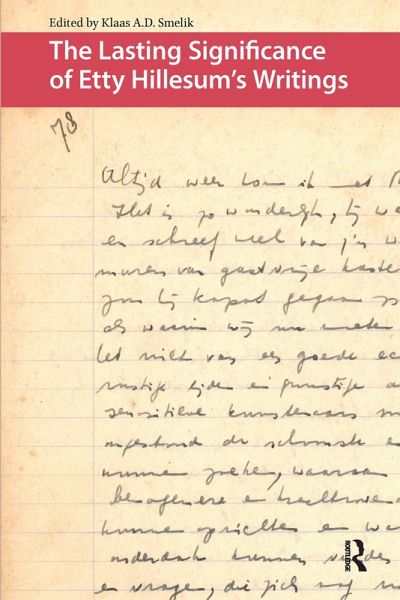 Edited by Klaas A.D. Smelik
The Lasting Significance
of Etty Hillesum's Writings
Altijd weer kom ik met
Het is zo wonderlijk, hij
en schreef veel van z'n
muren van gastvrije
zou hij kapot gegaan
als waarin wij nu moeten
het niet van een goede
rustige tijden en gunstige
sensitieve kunstenaars
ongestoord de schoonste
zoeken, waaraan
bewogener en
kunnen oprichten en
onderdak kunnen vinden
en vragen, die zich nog
ROUTLEDGE